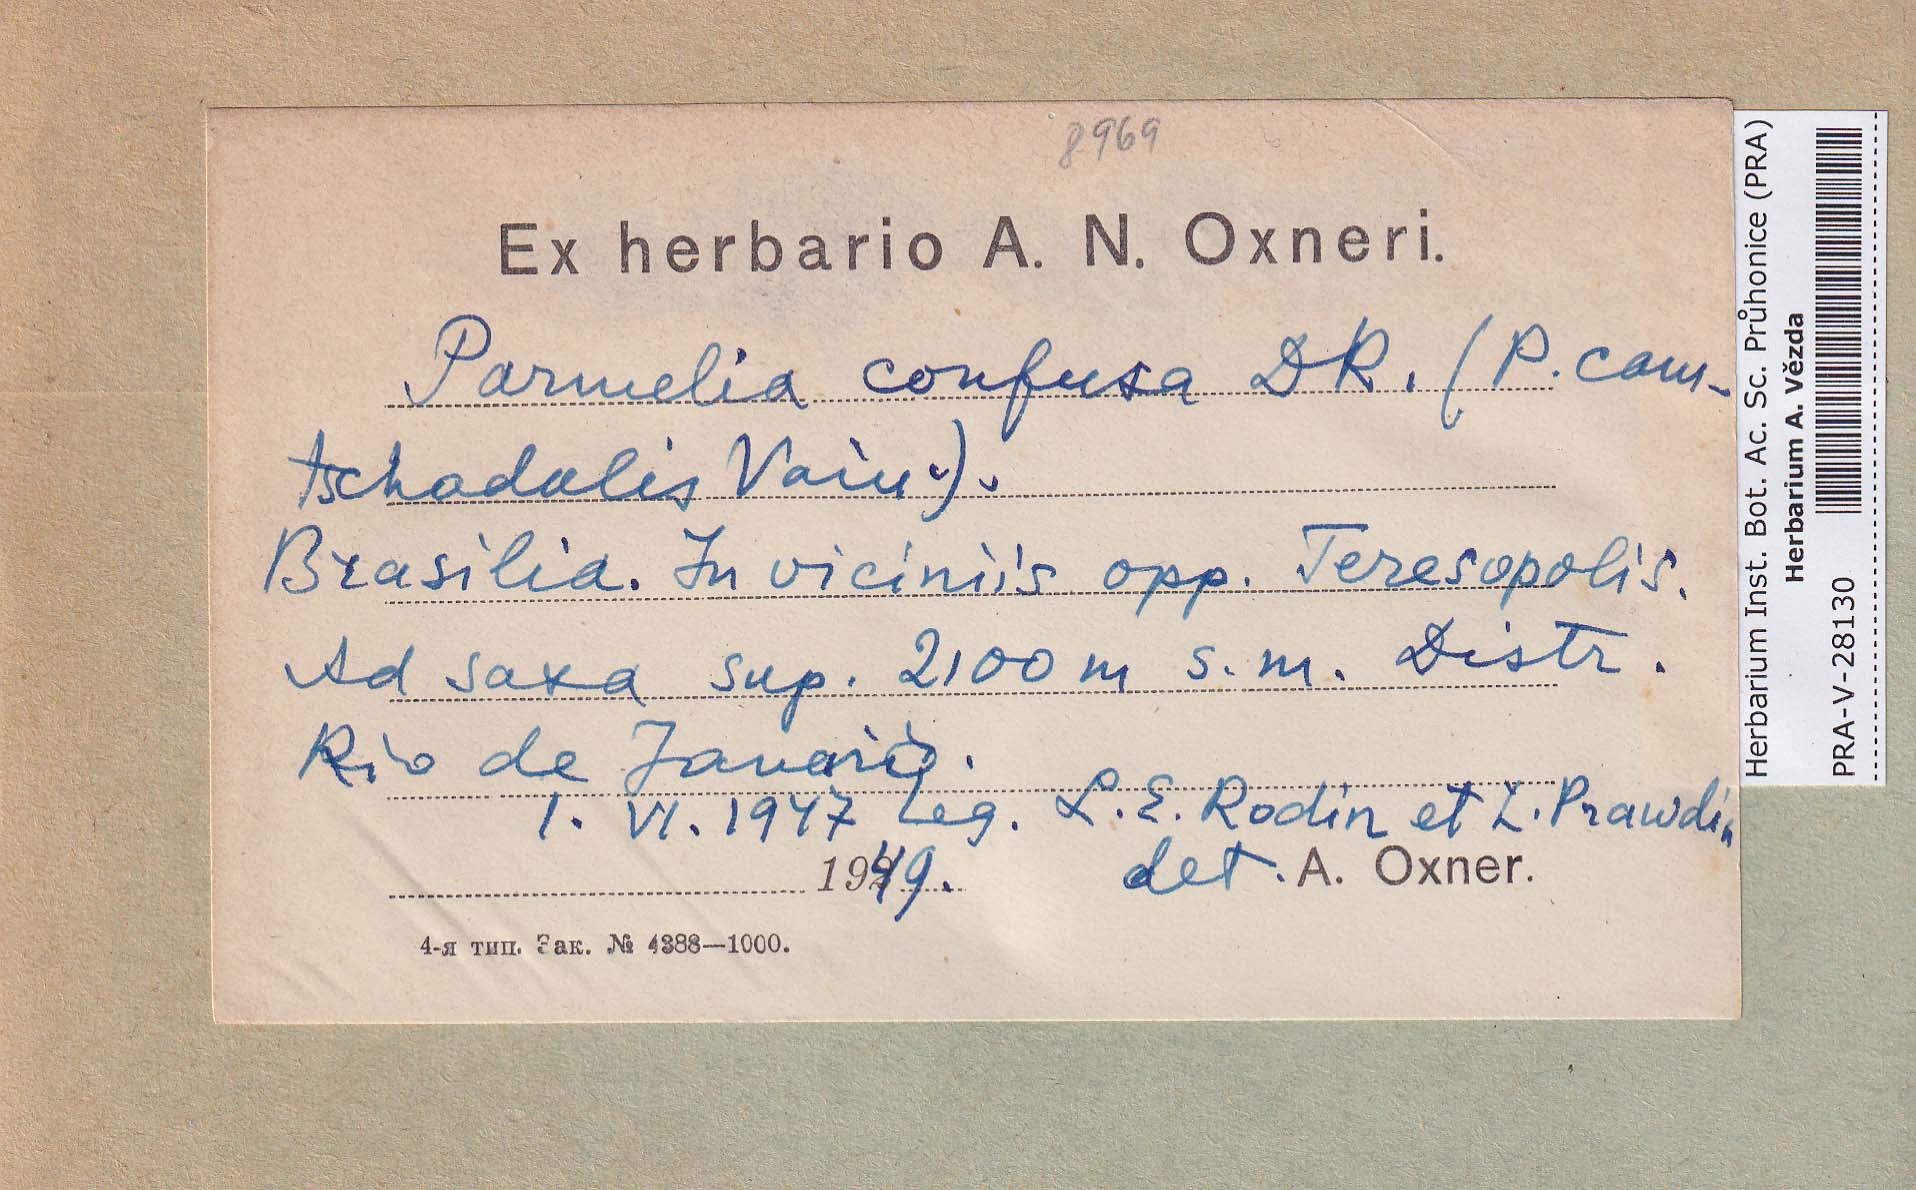 8969
Ex herbario A. N. Oxneri.
Parmelia confusa DR. (P. cam-
tschadalis Vain.).
Brasilia. In viciniis opp. Teresopolis.
Ad saxa sup. 2100 m s. m. Distr.
Rio de Janeiro.
1. VI. 1947 Leg. L. E. Rodin et L. Prawdin
1949. det. A. Oxner.
4-я тип. Зак. № 4388—1000.
Herbarium Inst. Bot. Ac. Sc. Průhonice (PRA)
Herbarium A. Vězda
PRA-V-28130